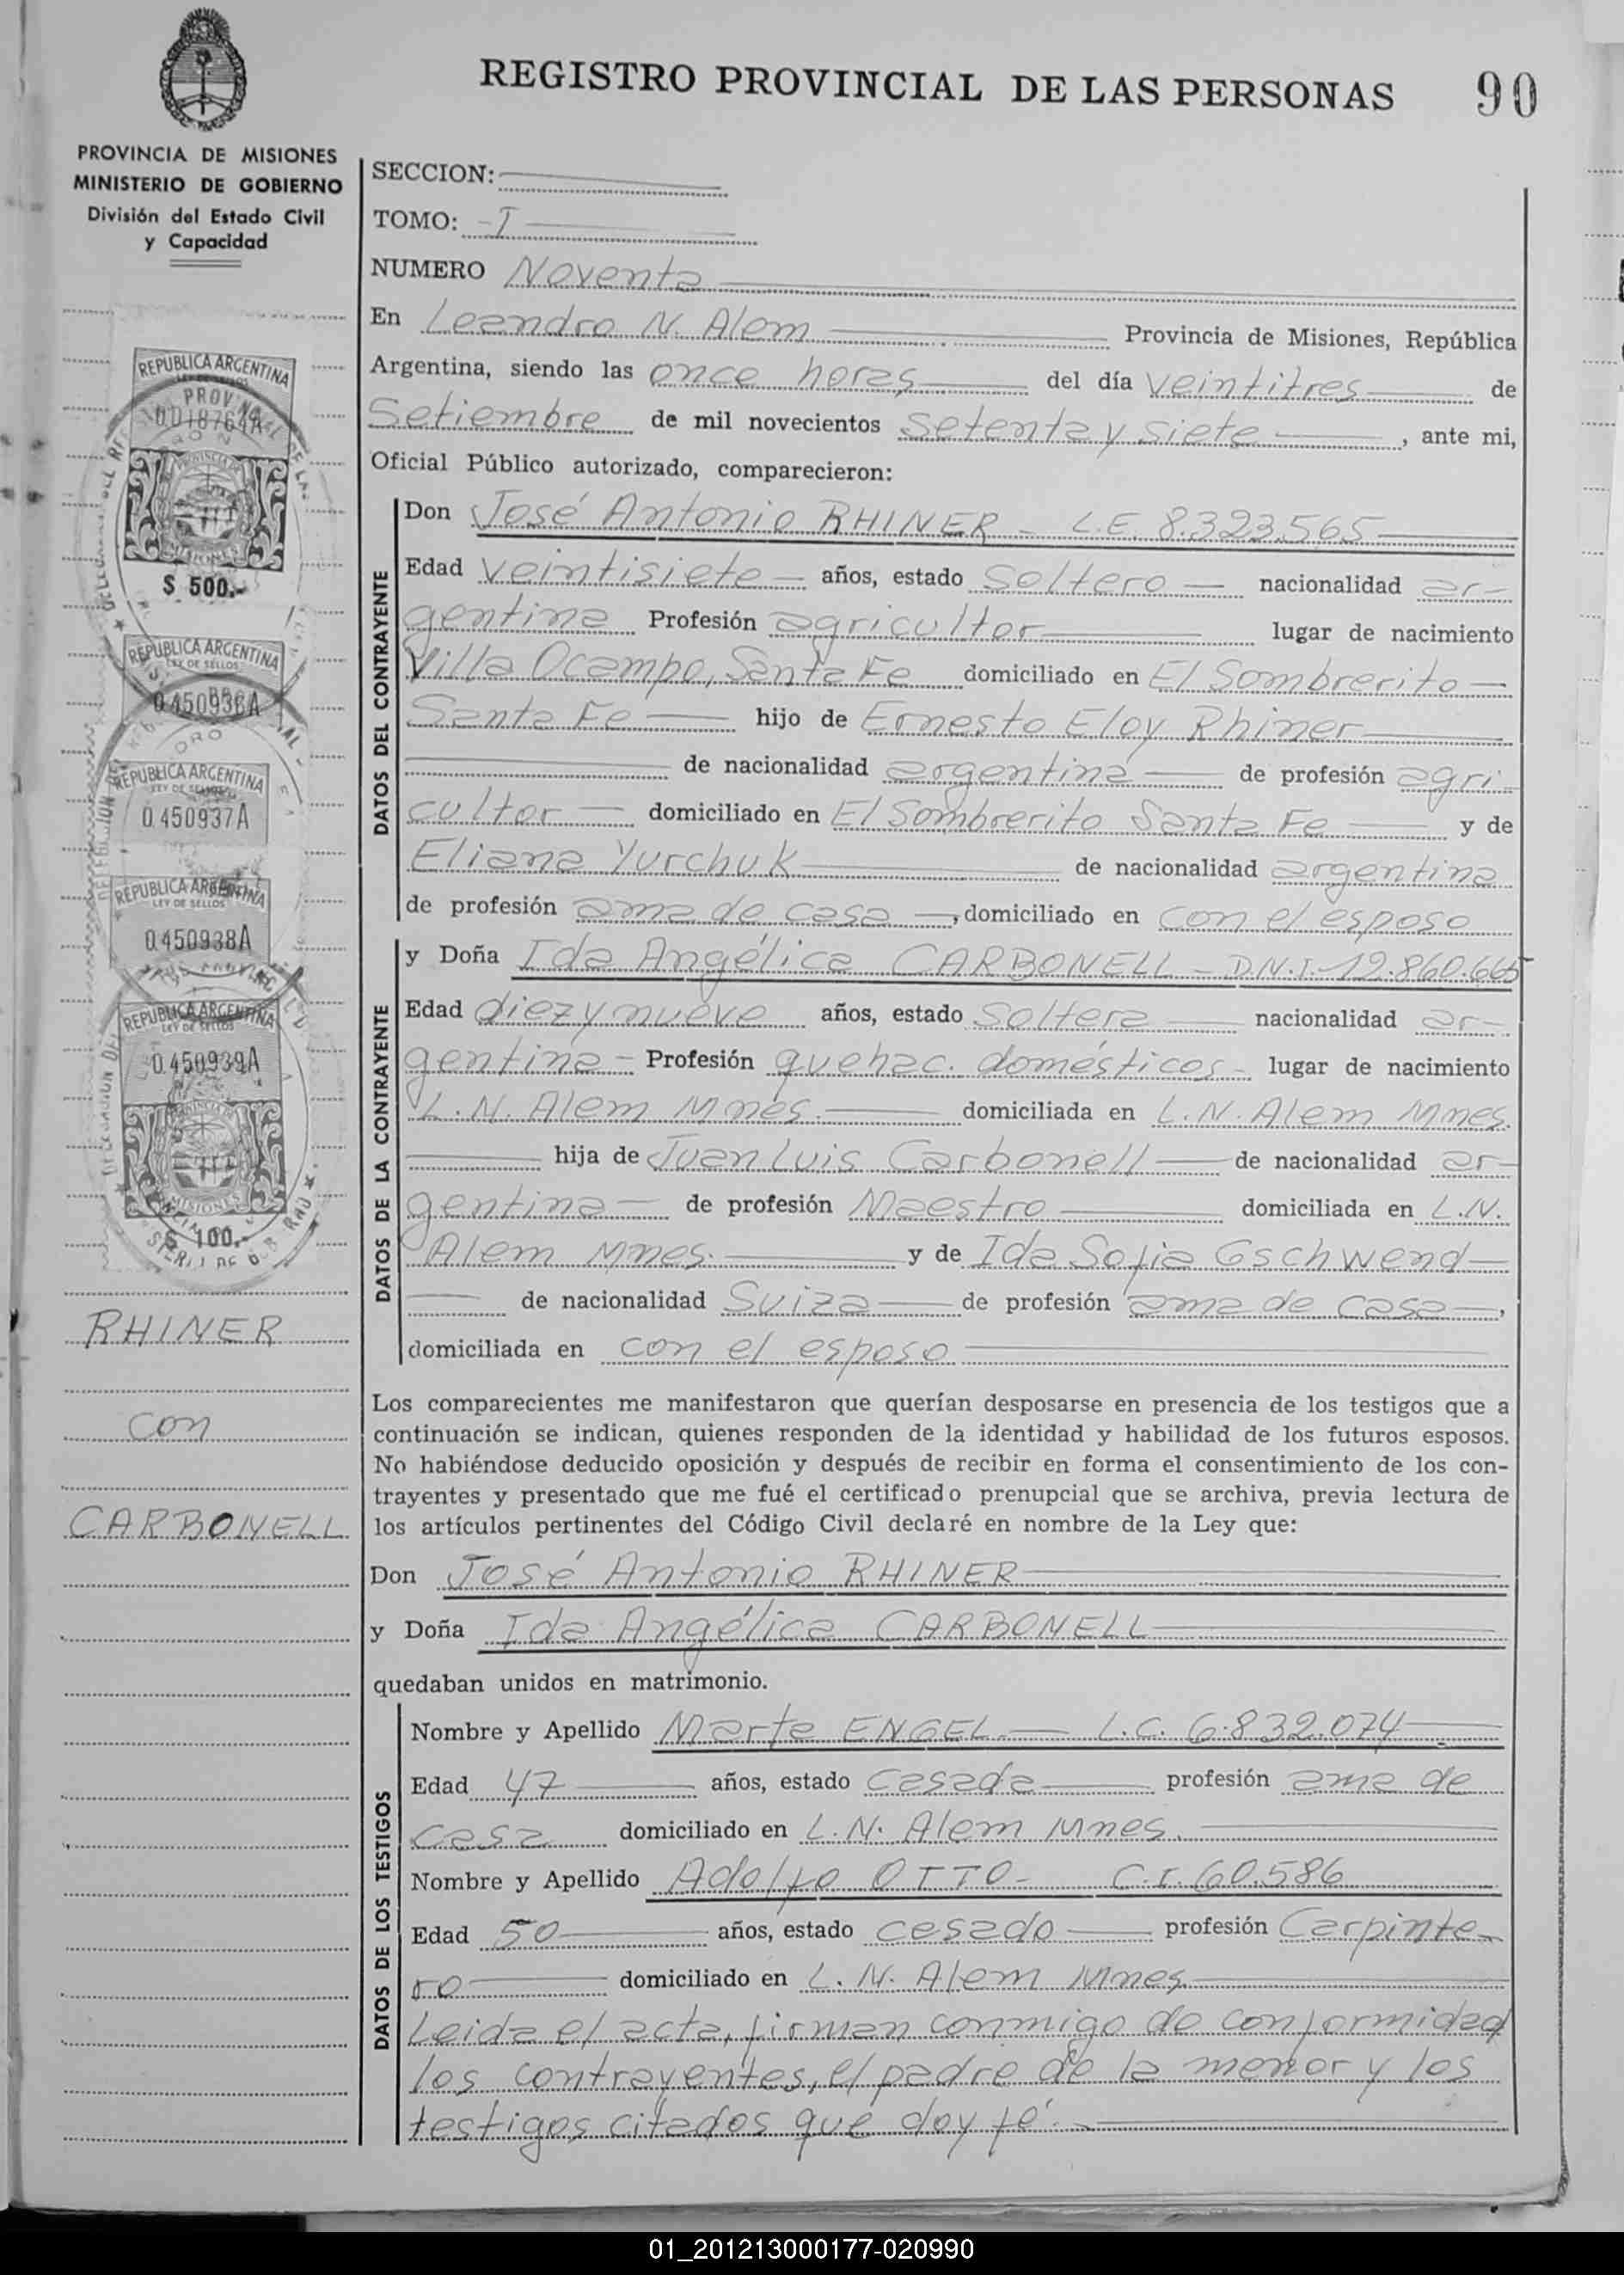 REGISTRO PROVINCIAL DE LAS PERSONAS 90
PROVINCIA DE MISIONES
MINISTERIO DE GOBIERNO
División del Estado Civil
y Capacidad
SECCION:
TOMO: I
NUMERO Noventa
En Leandro N. Alem Provincia de Misiones, República
Argentina, siendo las once horas del día veintitres de
Setiembre de mil novecientos setenta y siete, ante mi,
Oficial Público autorizado, comparecieron:
DATOS DEL CONTRAYENTE
Don José Antonio RHINER - L.E. 8.323.565
Edad veintisiete años, estado soltero nacionalidad ar-
gentina Profesión agricultor lugar de nacimiento
Villa Ocampo, Santa Fe domiciliado en El Sombrerito
Santa Fe hijo de Ernesto Eloy Rhiner
de nacionalidad argentina de profesión agri-
cultor domiciliado en El Sombrerito Santa Fe y de
Eliana Yurchuk de nacionalidad argentina
de profesión ama de casa, domiciliado en con el esposo
DATOS DE LA CONTRAYENTE
y Doña Ida Angélica CARBONELL - D.N.I. 12.860.665
Edad diez y nueve años, estado soltera nacionalidad ar-
gentina - Profesión quehac. domésticos - lugar de nacimiento
L.N. Alem Mnes. domiciliada en L.N. Alem Mnes.
hija de Juan Luis Carbonell de nacionalidad ar-
gentina de profesión Maestro domiciliada en L.N.
Alem Mnes. y de Ida Sofia Gschwend
de nacionalidad Suiza de profesión ama de casa,
domiciliada en con el esposo
Los comparecientes me manifestaron que querían desposarse en presencia de los testigos que a
continuación se indican, quienes responden de la identidad y habilidad de los futuros esposos.
No habiéndose deducido oposición y después de recibir en forma el consentimiento de los con-
trayentes y presentado que me fué el certificado prenupcial que se archiva, previa lectura de
los artículos pertinentes del Código Civil declaré en nombre de la Ley que:
Don José Antonio RHINER
y Doña Ida Angélica CARBONELL
quedaban unidos en matrimonio.
DATOS DE LOS TESTIGOS
Nombre y Apellido Marta ENGEL. L.C. 6.832.074
Edad 47 años, estado casada profesión ama de
casa domiciliado en L.N. Alem Mnes.
Nombre y Apellido Adolfo OTTO - C.I. 60.586
Edad 50 años, estado casado profesión Carpinte-
ro domiciliado en L.N. Alem Mnes.
Leida el acta, firman conmigo de conformidad
los contrayentes, el padre de la menor y los
testigos citados que doy fé.
REPUBLICA ARGENTINA
LEY DE SELLOS
0.018764A
PROVINCIA DE
MISIONES
$ 500.-
REPUBLICA ARGENTINA
LEY DE SELLOS
0.450936A
REPUBLICA ARGENTINA
LEY DE SELLOS
0.450937A
REPUBLICA ARGENTINA
LEY DE SELLOS
0.450938A
REPUBLICA ARGENTINA
LEY DE SELLOS
0.450939A
PROVINCIA DE
MISIONES
$ 100.-
RHINER
con
CARBONELL
01_201213000177-020990